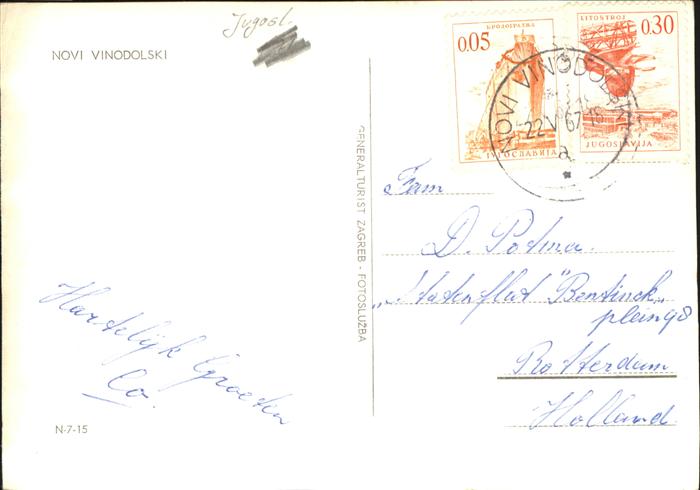 Jugosl.
NOVI VINODOLSKI
БРОДОГРАДЊА
0.05
ЈУГОСЛАВИЈА
LITOSTROJ
0.30
JUGOSLAVIJA
NOVI VINODOLSKI
22 V 67-18
a
GENERALTURIST ZAGREB - FOTOSLUŽBA
Fam
D. Postma.
"Statenflat" Bentinck
plein 98
Rotterdam
Holland.
Hartelijk Groeten
Co.
N-7-15